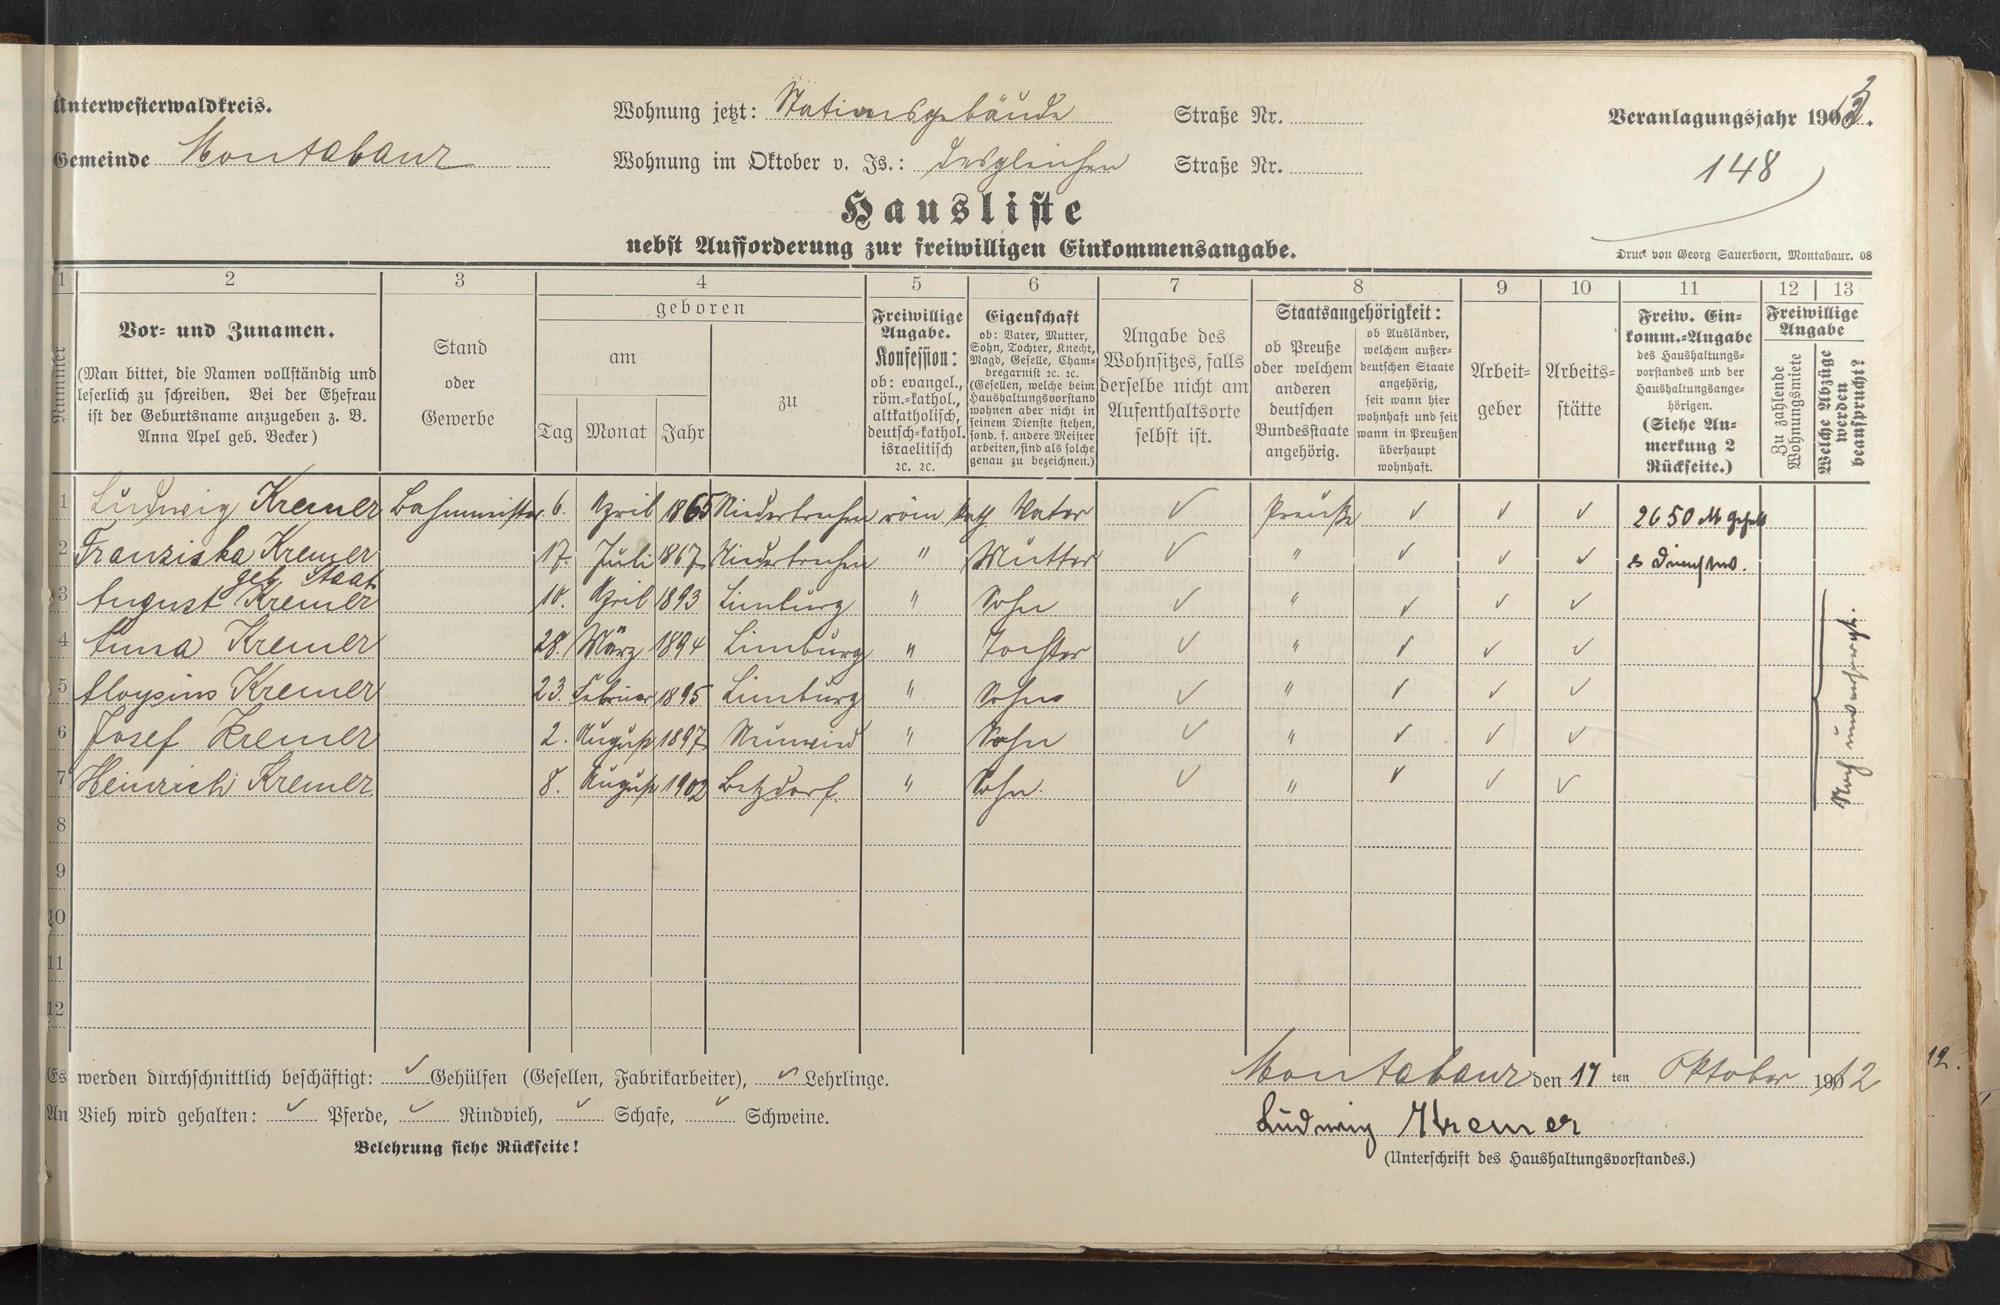 Unterwesterwaldkreis.
Gemeinde Montabaur
Wohnung jetzt: Stationsgebäude Straße Nr.
Wohnung im Oktober v. Js.: desgleichen Straße Nr.
Veranlagungsjahr 1913.
148
Hausliste
nebst Aufforderung zur freiwilligen Einkommensangabe.
Druck von Georg Sauerborn, Montabaur. 08
1 2 3 4 5 6 7 8 9 10 11 12 13
Nummer
Vor- und Zunamen.
(Man bittet, die Namen vollständig und
leserlich zu schreiben. Bei der Ehefrau
ist der Geburtsname anzugeben z. B.
Anna Apel geb. Becker)
Stand
oder
Gewerbe
geboren
am
Tag Monat Jahr
zu
Freiwillige
Angabe.
Konfession:
ob: evangel.,
röm.-kathol.,
altkatholisch,
deutsch-kathol.
israelitisch
2c. 2c.
Eigenschaft
ob: Vater, Mutter,
Sohn, Tochter, Knecht,
Magd, Geselle, Cham-
bregarnist 2c. 2c.
(Gesellen, welche beim
Haushaltungsvorstand
wohnen aber nicht in
seinem Dienste stehen,
sond. f. andere Meister
arbeiten, sind als solche
genau zu bezeichnen.)
Angabe des
Wohnsitzes, falls
derselbe nicht am
Aufenthaltsorte
selbst ist.
Staatsangehörigkeit:
ob Preuße
oder welchem
anderen
deutschen
Bundesstaate
angehörig.
ob Ausländer,
welchem außer-
deutschen Staate
angehörig,
seit wann hier
wohnhaft und seit
wann in Preußen
überhaupt
wohnhaft.
Arbeit-
geber
Arbeits-
stätte
Freiw. Ein-
komm.-Angabe
des Haushaltungs-
vorstandes und der
Haushaltungsange-
hörigen.
(Siehe An-
merkung 2
Rückseite.)
Freiwillige
Angabe
Zu zahlende
Wohnungsmiete
Welche Abzüge
werden
beansprucht?
1 Ludwig Kremer Bahnmeister 6. April 1865 Niederbrechen röm kath Vater ✓ Preuße ✓ ✓ ✓ 2650 M Gehalt
2 Franziska Kremer 17. Juli 1867 Niederbrechen " Mutter ✓ " ✓ ✓ ✓ & Dienstwo.
geb. Staat
3 August Kremer 10. April 1893 Limburg " Sohn ✓ " ✓ ✓ ✓
4 Anna Kremer 28. März 1894 Limburg " Tochter ✓ " ✓ ✓ ✓
5 Aloysius Kremer 23. Februar 1895 Limburg " Sohn ✓ " ✓ ✓ ✓
6 Josef Kremer 2. August 1897 Neuwied " Sohn ✓ " ✓ ✓ ✓
7 Heinrich Kremer 8. August 1902 Betzdorf. " Sohn. ✓ " ✓ ✓ ✓
8
9
10
11
12
Es werden durchschnittlich beschäftigt: ✓ Gehülfen (Gesellen, Fabrikarbeiter), ✓ Lehrlinge.
An Vieh wird gehalten: ✓ Pferde, ✓ Rindvieh, ✓ Schafe, ✓ Schweine.
Belehrung siehe Rückseite!
Montabaur den 17 ten Oktober 1912
Ludwig Kremer
(Unterschrift des Haushaltungsvorstandes.)
12.